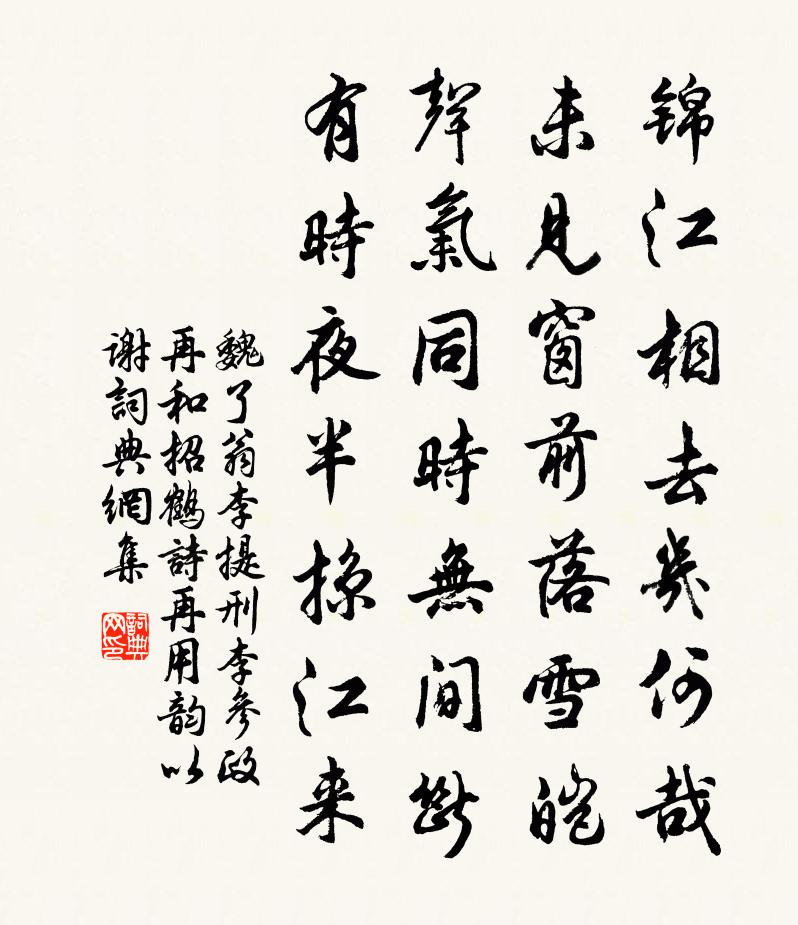 錦江相去幾何哉
未見窗前落雪皚
聲氣同時無間斷
有時夜半掠江来
魏了翁李提刑李參政
再和招鶴詩再用韵以
謝詞典網集
詞典网印